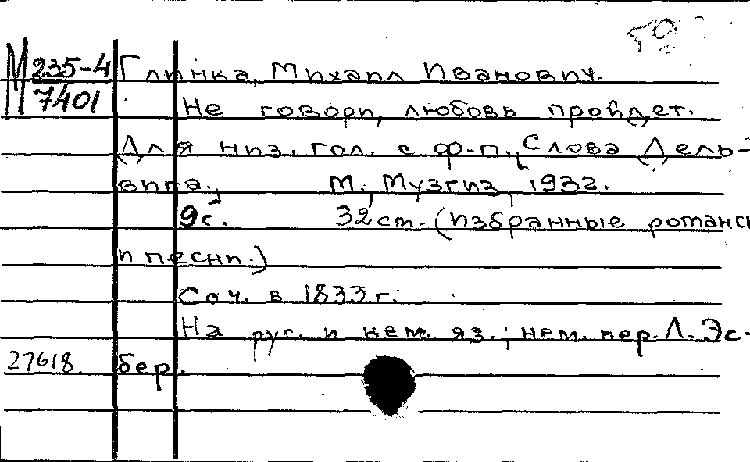 50
М 235-4
7401
Глинка, Михаил Иванович.
Не говори, любовь пройдет.
Для низ. гол. с ф-п., Слова Дель-
вига., М., Музгиз, 1932.
9с. 32 cm. (Избранные романсы
и песни.)
Соч. в 1833 г.
На рус. и нем. яз.; нем. пер. Л. Эс-
27618 бер.